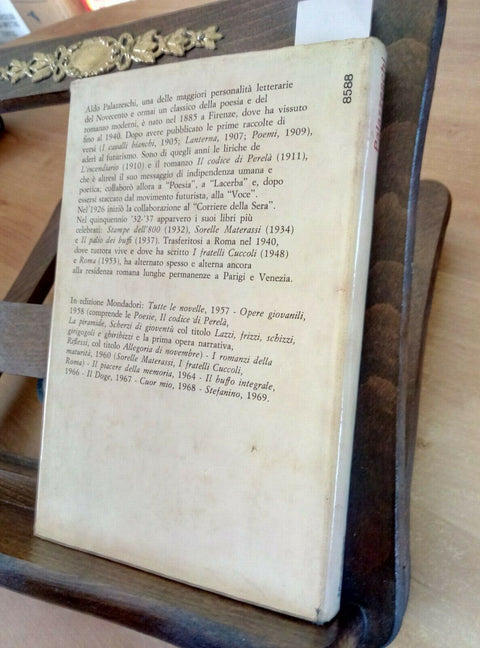 Aldo Palazzeschi, una delle maggiori personalità letterarie
del Novecento e ormai un classico della poesia e del
romanzo moderni, è nato nel 1885 a Firenze, dove ha vissuto
fino al 1940. Dopo avere pubblicato le prime raccolte di
versi (I cavalli bianchi, 1905; Lanterna, 1907; Poemi, 1909),
aderì al futurismo. Sono di quegli anni le liriche de
L'incendiario (1910) e il romanzo Il codice di Perelà (1911),
che è altresì il suo messaggio di indipendenza umana e
poetica; collaborò allora a "Poesia", a "Lacerba" e, dopo
essersi staccato dal movimento futurista, alla "Voce".
Nel 1926 iniziò la collaborazione al "Corriere della Sera".
Nel quinquennio '32-'37 apparvero i suoi libri più
celebrati: Stampe dell'800 (1932), Sorelle Materassi (1934)
e Il palio dei buffi (1937). Trasferitosi a Roma nel 1940,
dove tuttora vive e dove ha scritto I fratelli Cuccoli (1948)
e Roma (1953), ha alternato spesso e alterna ancora
alla residenza romana lunghe permanenze a Parigi e Venezia.
In edizione Mondadori: Tutte le novelle, 1957 - Opere giovanili,
1958 (comprende le Poesie, Il codice di Perelà,
La piramide, Scherzi di gioventù col titolo Lazzi, frizzi, schizzi,
girigogoli e ghiribizzi e la prima opera narrativa,
Riflessi, col titolo Allegoria di novembre) - I romanzi della
maturità, 1960 (Sorelle Materassi, I fratelli Cuccoli,
Roma) - Il piacere della memoria, 1964 - Il buffo integrale,
1966 - Il Doge, 1967 - Cuor mio, 1968 - Stefanino, 1969.
8588